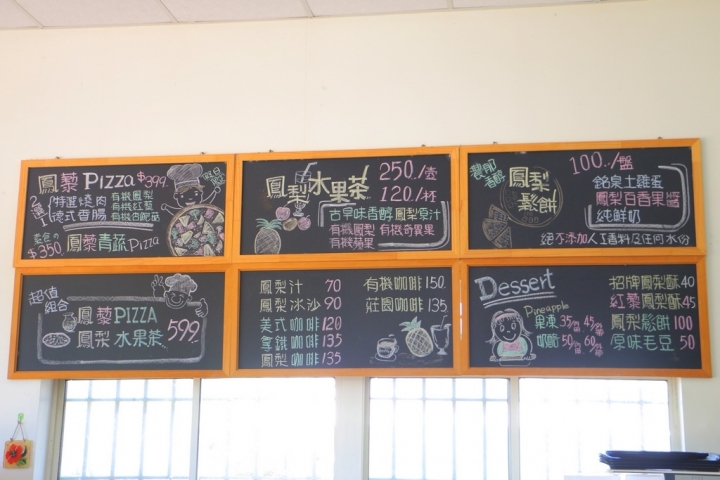 鳳藜Pizza $399.
2選1
特選燒肉
德式香腸
有機鳳梨
有機紅藜
有機杏鮑菇
素食の
$350. 鳳藜青蔬Pizza
鳳梨水果茶
250./壺
120./杯
古早味香醇鳳梨原汁
有機鳳梨 有機奇異果
有機蘋果
100./盤
鳳梨鬆餅
銘泉土雞蛋
鳳梨百香果醬
純鮮奶
絕不添加人工香料及任何水份
超值組合
鳳藜PIZZA
鳳梨水果茶
599.
鳳梨汁 70
鳳梨冰沙 90
美式咖啡 120
拿鐵咖啡 135
鳳梨咖啡 135
有機咖啡 150.
莊園咖啡 135.
Dessert
Pineapple
果凍 35 45
奶酪 50 60
招牌鳳梨酥 40
紅藜鳳梨酥 45
鳳梨鬆餅 100
原味毛豆 50